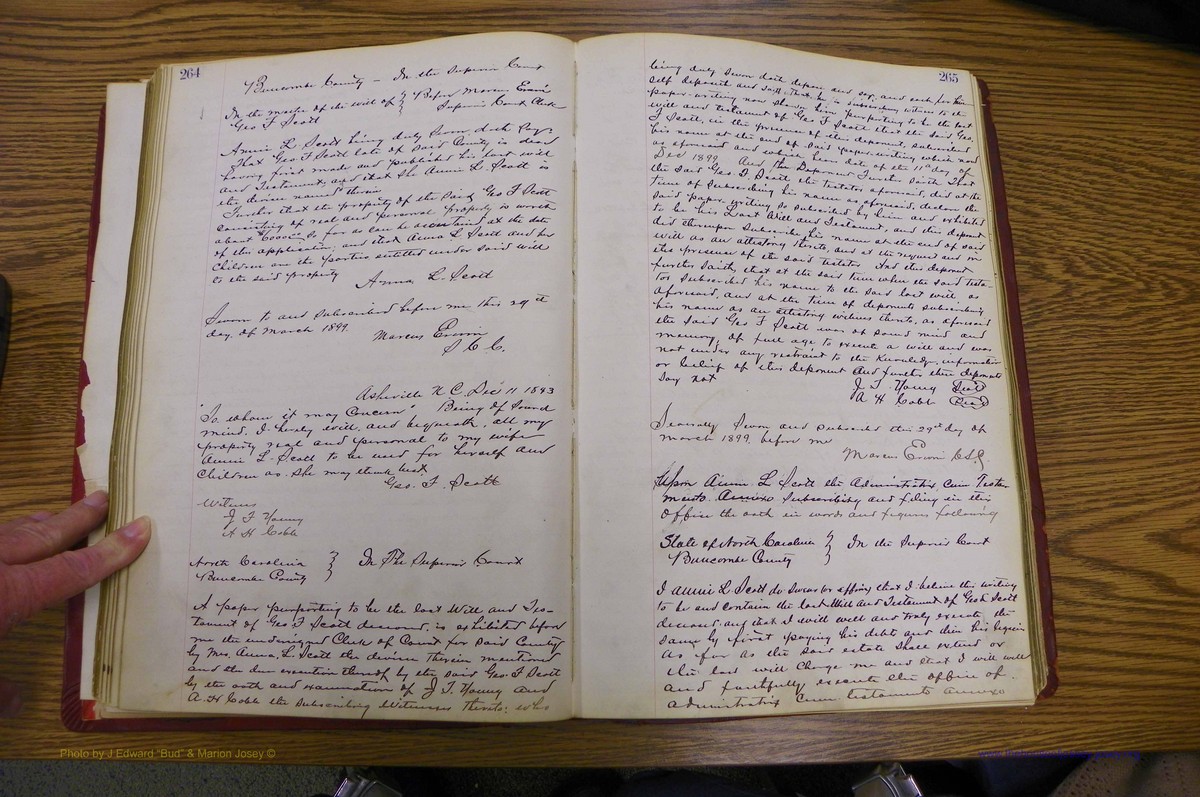 264
Buncombe County - In the Superior Court
In the matter of the will of } Before Marcus Erwin
Geo F Scott } Superior Court Clerk
Annie L. Scott being duly sworn doth say:
That Geo. F Scott late of said County is dead
having first made and published his last will
and Testament, and that she Annie L. Scott is
the devisee named therein
Further that the property of the said Geo F Scott
consisting of real and personal property is worth
about so far as can be ascertained at the date
of this application, and that Anna L Scott and her
children are the parties entitled under said will
to the said property
Anna L. Scott
Sworn to and subscribed before me this 29th
day of March 1899
Marcus Erwin
S C C.
Asheville N C. Dec 11 1893
"To whom it may Concern" Being of sound
mind, I hereby will and bequeath, all my
property real and personal to my wife
Annie L. Scott to be used for herself and
Children as she may think best
Geo. F. Scott
Witness
J F Young
A H Cobb
North Carolina } In The Superior Court
Buncombe County }
A paper purporting to be the last Will and Tes-
tament of Geo F Scott deceased, is exhibited before
me the undersigned Clerk of Court for said County
by Mrs. Anna L. Scott the devisee therein mentioned
and the due execution thereof by the said Geo. F Scott
by the oath and examination of J T. Young and
A. H Cobb the subscribing witnesses thereto; who
265
being duly sworn doth depose and say, and each for him
self deposeth and saith: That he is subscribing witness to the
paper writing now shown him purporting to be the last
will and testament of Geo F Scott that the said Geo.
F Scott, in the presence of this deponent, subscribed
his name at the end of said paper writing which now
as aforesaid and which bears date of the 11th day of
Dec 1899 And the Deponent Further saith That
the said Geo F Scott the testator aforesaid did at the
time of subscribing his name as aforesaid, declare the
said paper writing so subscribed by him and exhibited
to be his Last Will and Testament, and this deponent
did thereupon subscribe his name at the end of said
will as an attesting thereto, and at the request and in
the presence of the said testator And this deponent
further saith, that at the said time when the said testa-
tor subscribed his name to the said last will, as
aforesaid, and at the time of deponents subscribing
his name as an attesting witness thereto, as aforesaid
the said Geo F Scott was of sound mind and
memory, of full age to execute a will and was
not under any restraint to the knowledge, information
or belief of this deponent and further these deponents
say not
J. T. Young (Seal)
A H Cobb (Seal)
Severally sworn and subscribed this 29th day of
March 1899 before me
Marcus Erwin C.S.C.
Upon Annie L Scott the Administratrix Cum Testa-
mento Annexo subscribing and filing in this
Office the oath in words and figures following
State of North Carolina } In the Superior Court
Buncombe County }
I Annie L Scott do swear (or affirm) that I believe this writing
to be and contain the last Will and Testament of Geo F Scott
deceased, and that I will well and truly execute the
same by first paying his debts and then his legacies
as far as the said estate shall extend or
the law will charge me and that I will well
and faithfully execute the office of
administratrix Cum testamento annexo
Photo by J Edward "Bud" & Marion Josey ©